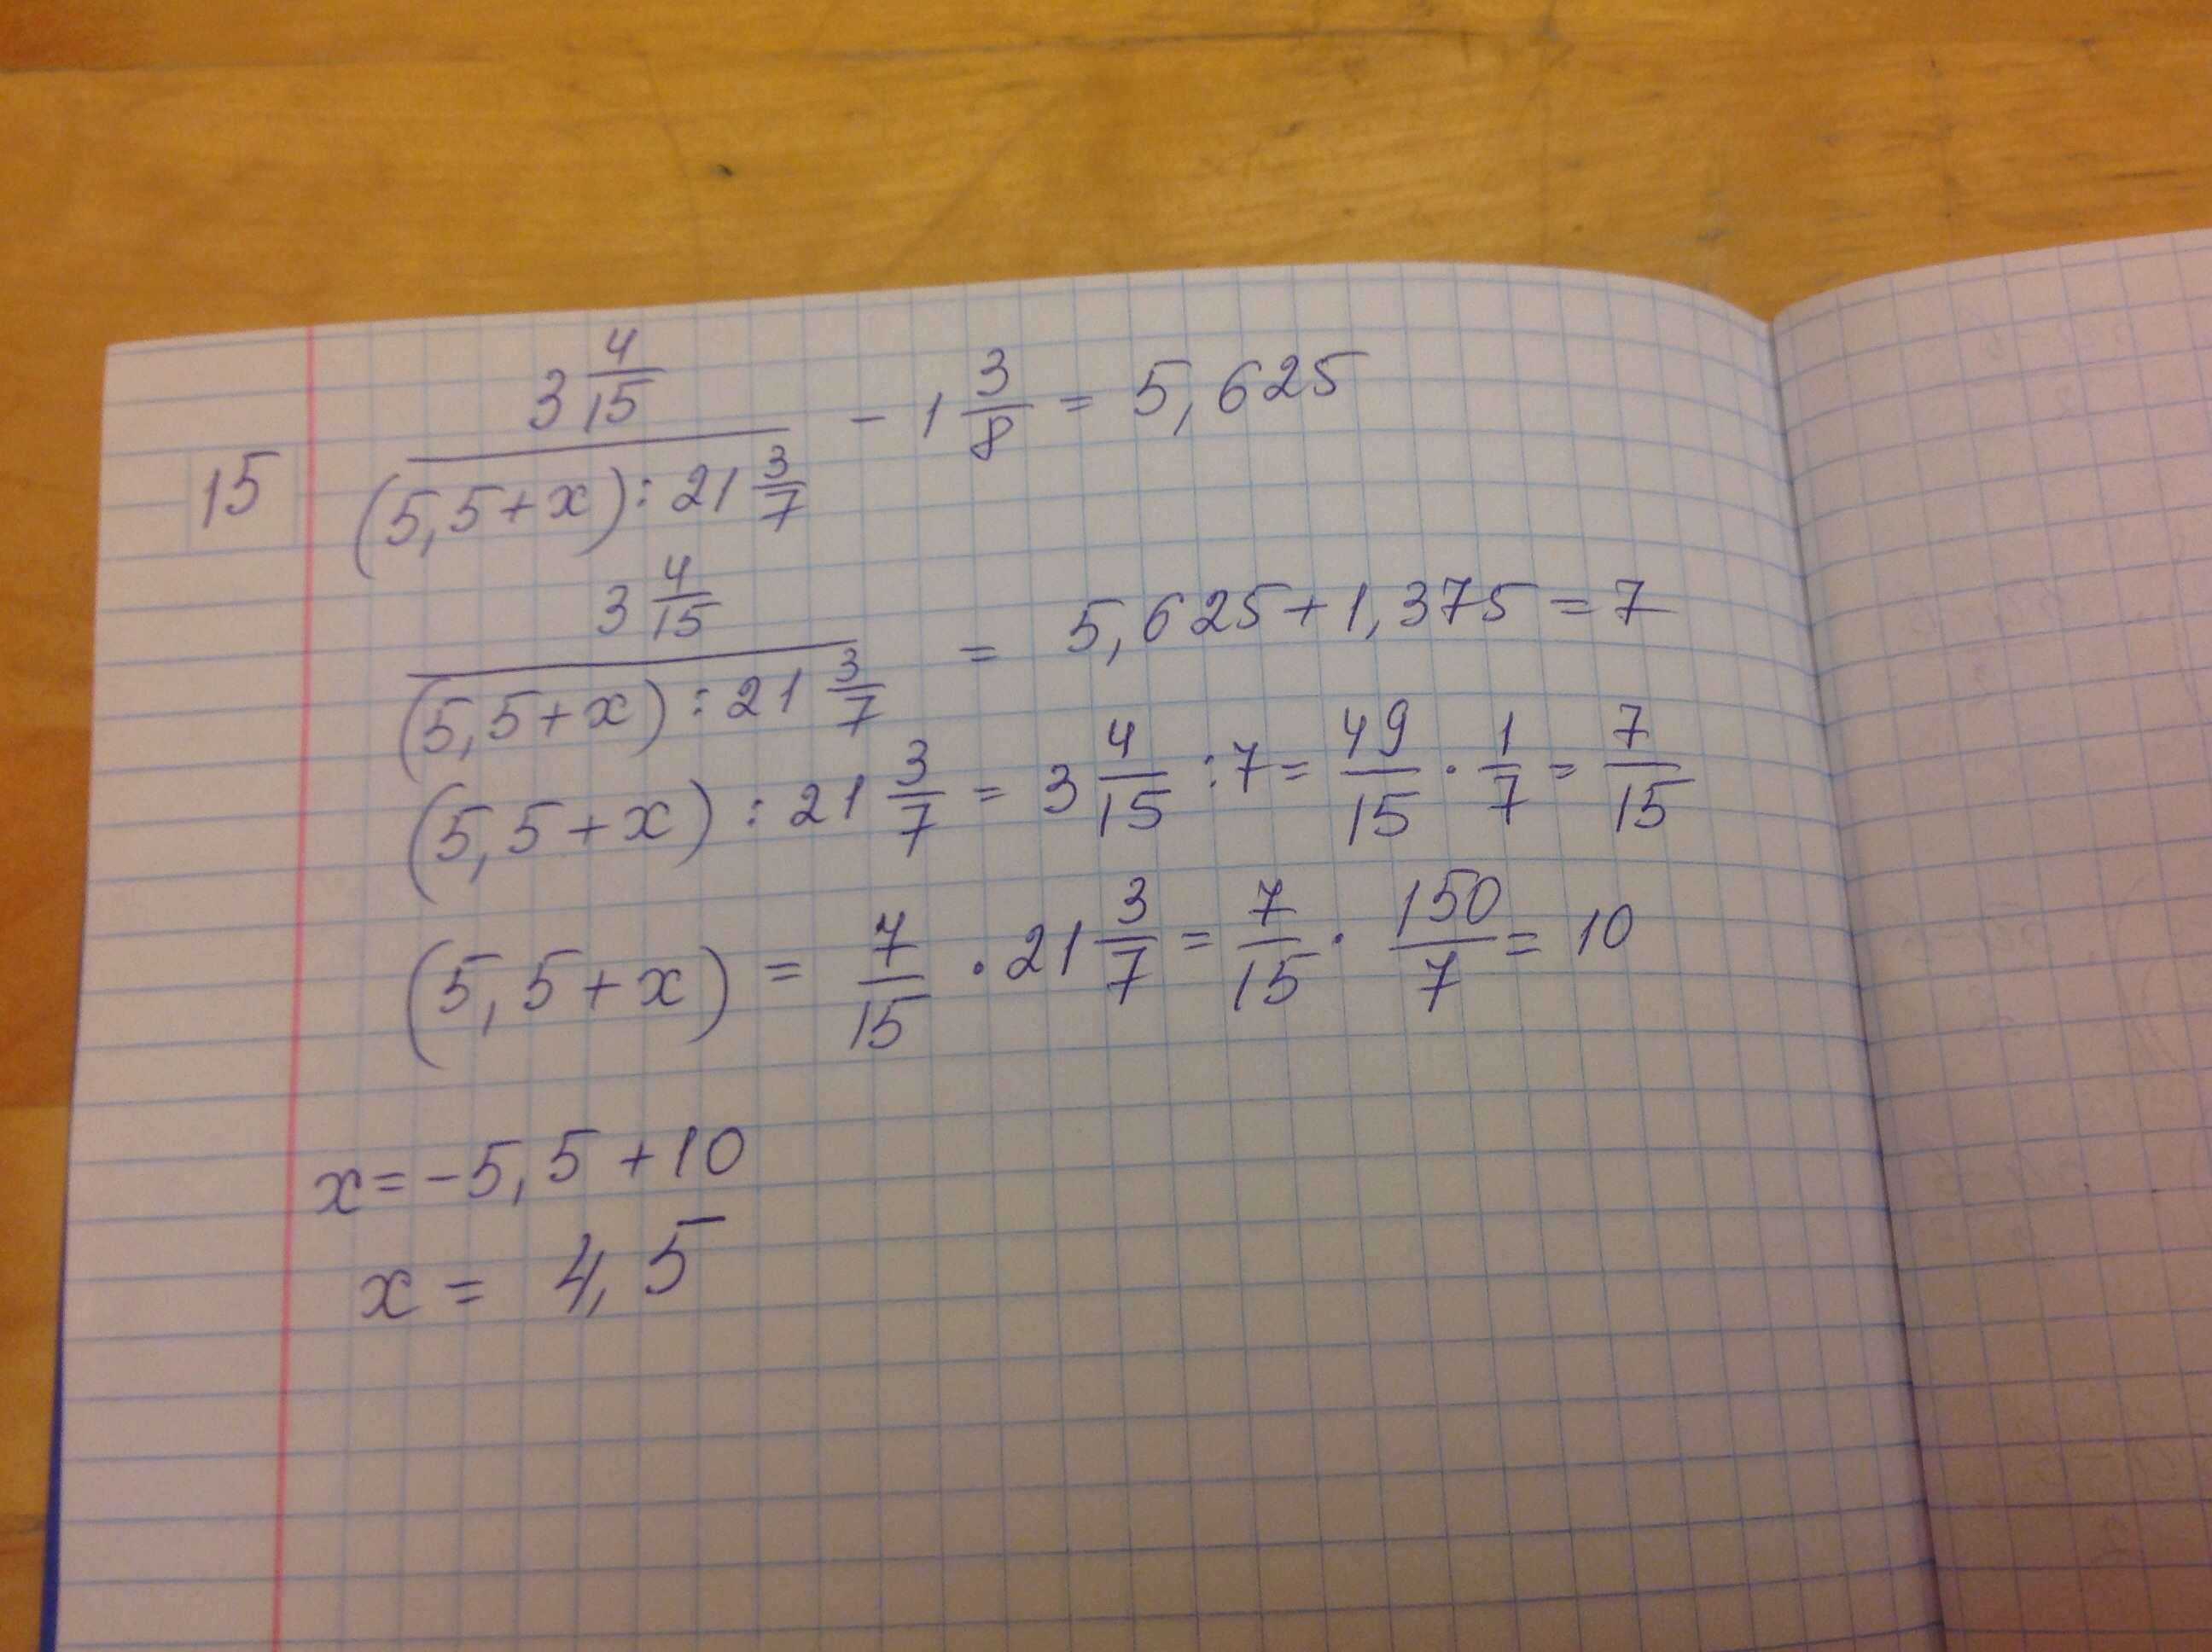 15 (3 4/15)/((5,5+x):21 3/7) - 1 3/8 = 5,625
(3 4/15)/((5,5+x):21 3/7) = 5,625+1,375=7
(5,5+x):21 3/7 = 3 4/15 :7= 49/15 · 1/7 = 7/15
(5,5+x) = 7/15 · 21 3/7 = 7/15 · 150/7 = 10
x=-5,5+10
x = 4,5